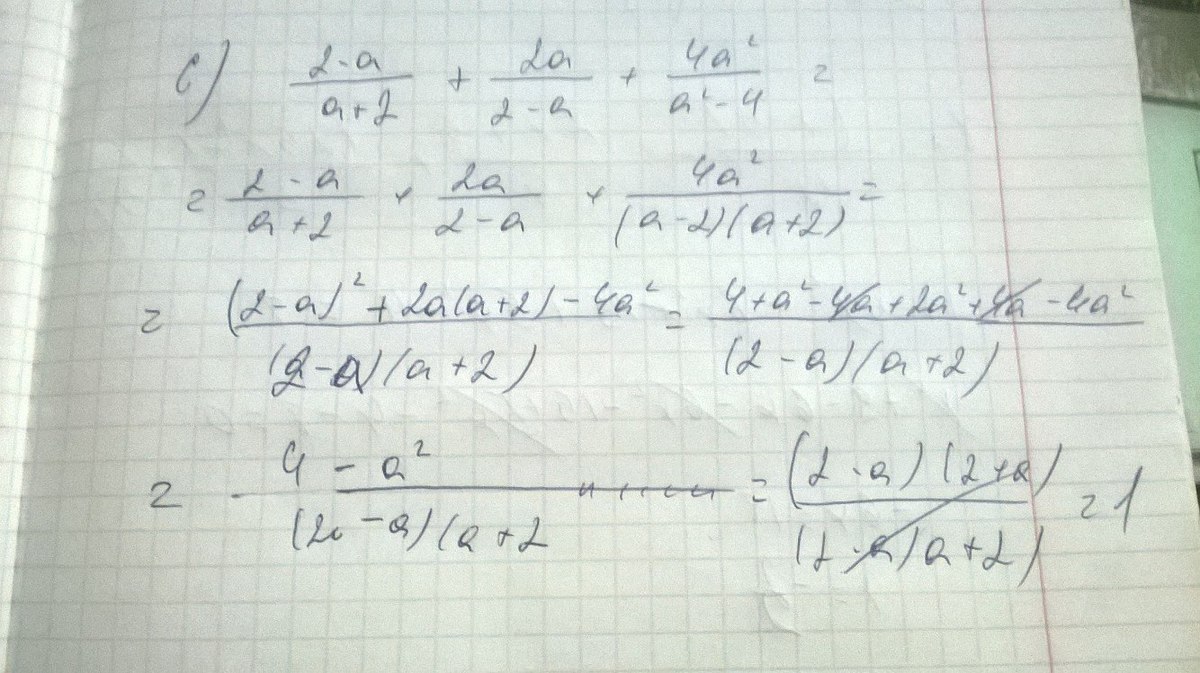 в) (2-a)/(a+2) + 2a/(2-a) + 4a²/(a²-4) =
= (2-a)/(a+2) + 2a/(2-a) + 4a²/((a-2)(a+2)) =
= ((2-a)²+2a(a+2)-4a²)/((2-a)(a+2)) = (4+a²-4a+2a²+4a-4a²)/((2-a)(a+2))
= (4-a²)/((2-a)(a+2) = ((2-a)(2+a))/((2-a)a+2)) = 1